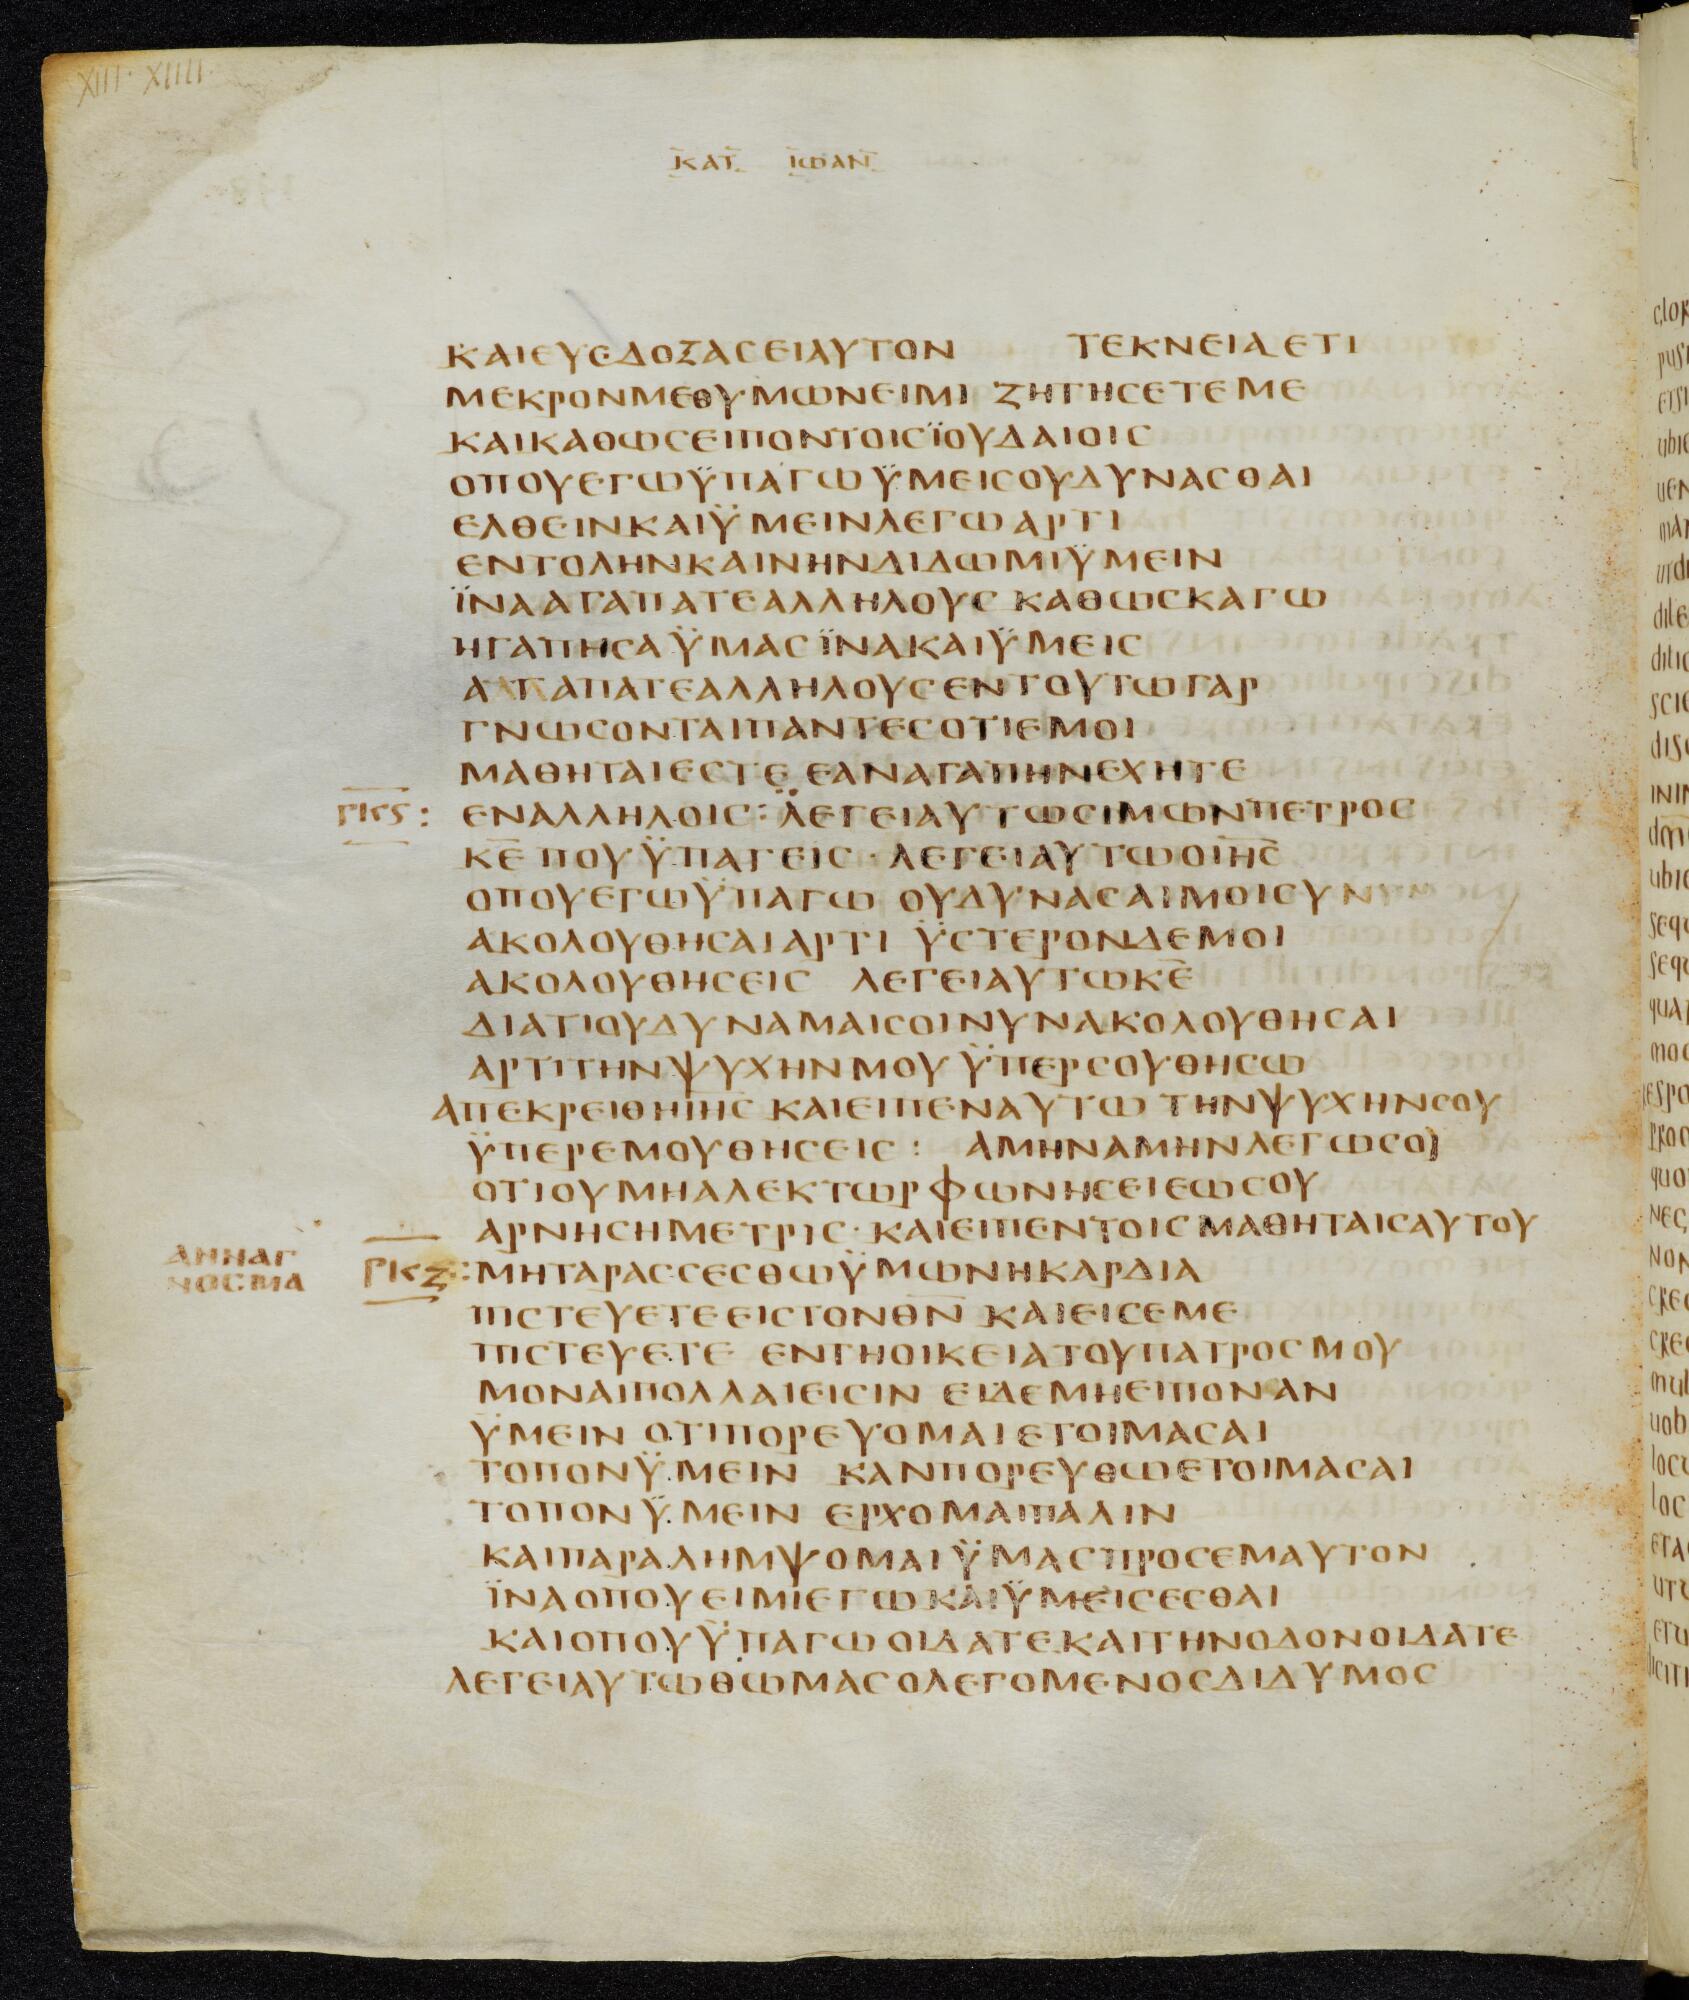 XIII · XIIII ·
ΚΑΤ ΙΩΑΝ
ΚΑΙΕΥΕΔΟΞΑΣΕΙΑΥΤΟΝ ΤΕΚΝΕΙΑ ΕΤΙ
ΜΕΚΡΟΝΜΕΘΥΜΩΝΕΙΜΙ ΖΗΤΗϹΕΤΕΜΕ
ΚΑΙΚΑΘΩϹΕΙΠΟΝΤΟΙϹΪΟΥΔΑΙΟΙϹ
ΟΠΟΥΕΓΩΫΠΑΓΩΫΜΕΙϹΟΥΔΥΝΑϹΘΑΙ
ΕΛΘΕΙΝΚΑΙΫΜΕΙΝΛΕΓΩΑΡΤΙ
ΕΝΤΟΛΗΝΚΑΙΝΗΝΔΙΔΩΜΙΫΜΕΙΝ
ΪΝΑΑΓΑΠΑΤΕΑΛΛΗΛΟΥϹ ΚΑΘΩϹΚΑΓΩ
ΗΓΑΠΗϹΑΫΜΑϹΪΝΑΚΑΙΫΜΕΙϹ
ΑΓΑΠΑΤΕΑΛΛΗΛΟΥϹΕΝΤΟΥΤΩΓΑΡ
ΓΝΩϹΟΝΤΑΙΠΑΝΤΕϹΟΤΙΕΜΟΙ
ΜΑΘΗΤΑΙΕϹΤΕ ΕΑΝΑΓΑΠΗΝΕΧΗΤΕ
ΡΚϚ : ΕΝΑΛΛΗΛΟΙϹ : ΛΕΓΕΙΑΥΤΩϹΙΜΩΝΠΕΤΡΟϹ
ΚΕ̅ ΠΟΥΫΠΑΓΕΙϹ · ΛΕΓΕΙΑΥΤΩΟΙΗϹ̅
ΟΠΟΥΕΓΩΫΠΑΓΩ ΟΥΔΥΝΑϹΑΙΜΟΙϹΥΝ
ΑΚΟΛΟΥΘΗϹΑΙΑΡΤΙ ΫϹΤΕΡΟΝΔΕΜΟΙ
ΑΚΟΛΟΥΘΗϹΕΙϹ ΛΕΓΕΙΑΥΤΩΚΕ̅
ΔΙΑΤΙΟΥΔΥΝΑΜΑΙϹΟΙΝΥΝΑΚΟΛΟΥΘΗϹΑΙ
ΑΡΤΙΤΗΝΨΥΧΗΝΜΟΥΫΠΕΡϹΟΥΘΗϹΩ
ΑΠΕΚΡΕΙΘΗΙΗϹ̅ ΚΑΙΕΙΠΕΝΑΥΤΩ ΤΗΝΨΥΧΗΝϹΟΥ
ΫΠΕΡΕΜΟΥΘΗϹΕΙϹ : ΑΜΗΝΑΜΗΝΛΕΓΩϹΟΙ
ΟΤΙΟΥΜΗΑΛΕΚΤΩΡΦΩΝΗϹΕΙΕΩϹΟΥ
ΑΡΝΗϹΗΜΕΤΡΙϹ · ΚΑΙΕΙΠΕΝΤΟΙϹΜΑΘΗΤΑΙϹΑΥΤΟΥ
ΑΝΝΑΓ
ΝΟϹΜΑ
ΡΚΖ : ΜΗΤΑΡΑϹϹΕϹΘΩΫΜΩΝΗΚΑΡΔΙΑ
ΠΙϹΤΕΥΕΤΕΕΙϹΤΟΝΘΝ̅ ΚΑΙΕΙϹΕΜΕ
ΠΙϹΤΕΥΕΤΕ ΕΝΤΗΟΙΚΕΙΑΤΟΥΠΑΤΡΟϹΜΟΥ
ΜΟΝΑΙΠΟΛΛΑΙΕΙϹΙΝ ΕΙΔΕΜΗΕΙΠΟΝΑΝ
ΫΜΕΙΝ ΟΤΙΠΟΡΕΥΟΜΑΙΕΤΟΙΜΑϹΑΙ
ΤΟΠΟΝΫΜΕΙΝ ΚΑΝΠΟΡΕΥΘΩΕΤΟΙΜΑϹΑΙ
ΤΟΠΟΝΫΜΕΙΝ ΕΡΧΟΜΑΙΠΑΛΙΝ
ΚΑΙΠΑΡΑΛΗΜΨΟΜΑΙΫΜΑϹΠΡΟϹΕΜΑΥΤΟΝ
ΪΝΑΟΠΟΥΕΙΜΙΕΓΩΚΑΙΫΜΕΙϹΕϹΘΑΙ
ΚΑΙΟΠΟΥΫΠΑΓΩΟΙΔΑΤΕΚΑΙΤΗΝΟΔΟΝΟΙΔΑΤΕ
ΛΕΓΕΙΑΥΤΩΘΩΜΑϹΟΛΕΓΟΜΕΝΟϹΔΙΔΥΜΟϹ